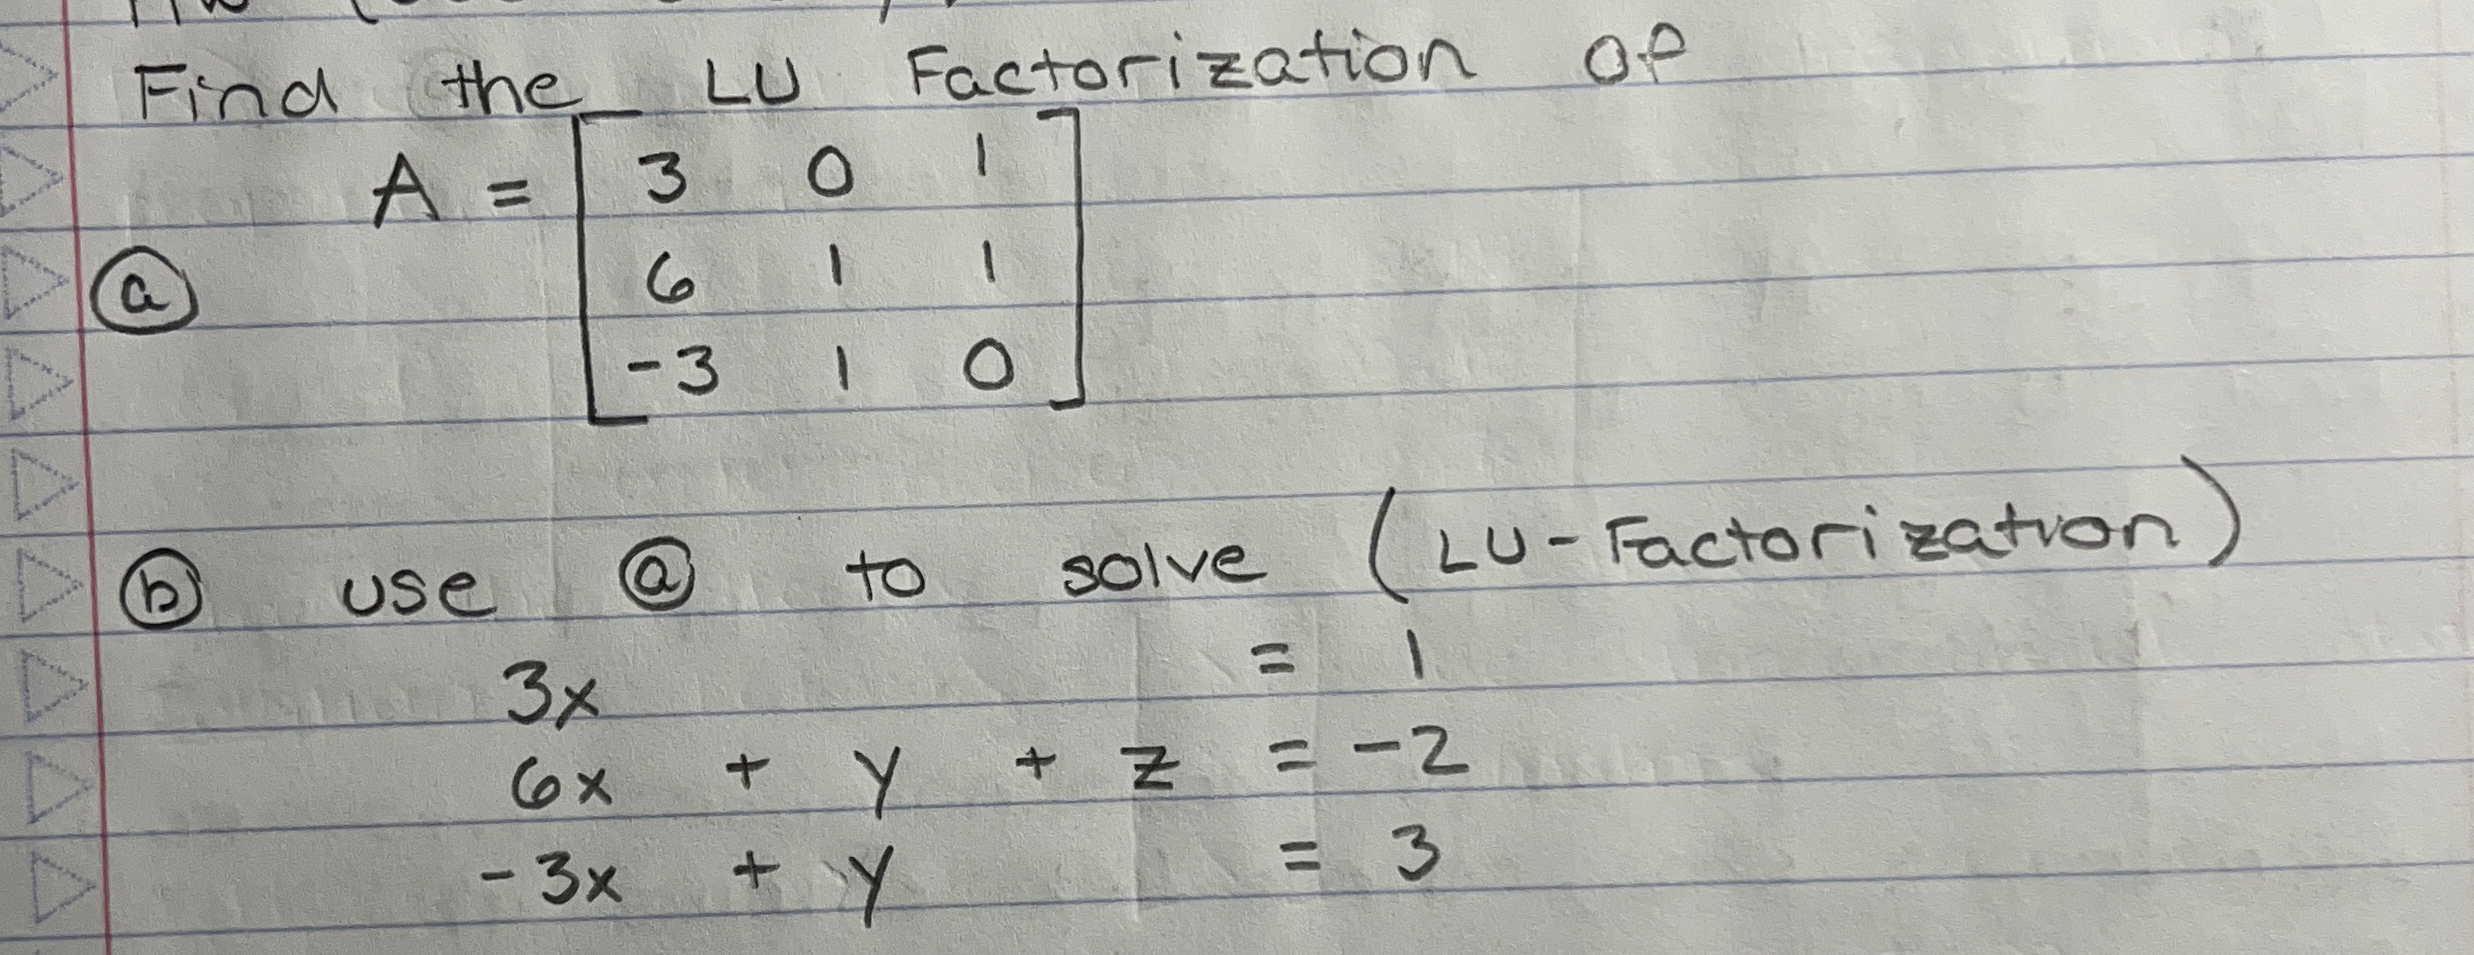 Find the LU Factorization of
A = [3 0 1
ⓐ 6 1 1
-3 1 0]
ⓑ use ⓐ to solve (LU-Factorization)
3x = 1
6x + y + z = -2
-3x + y = 3